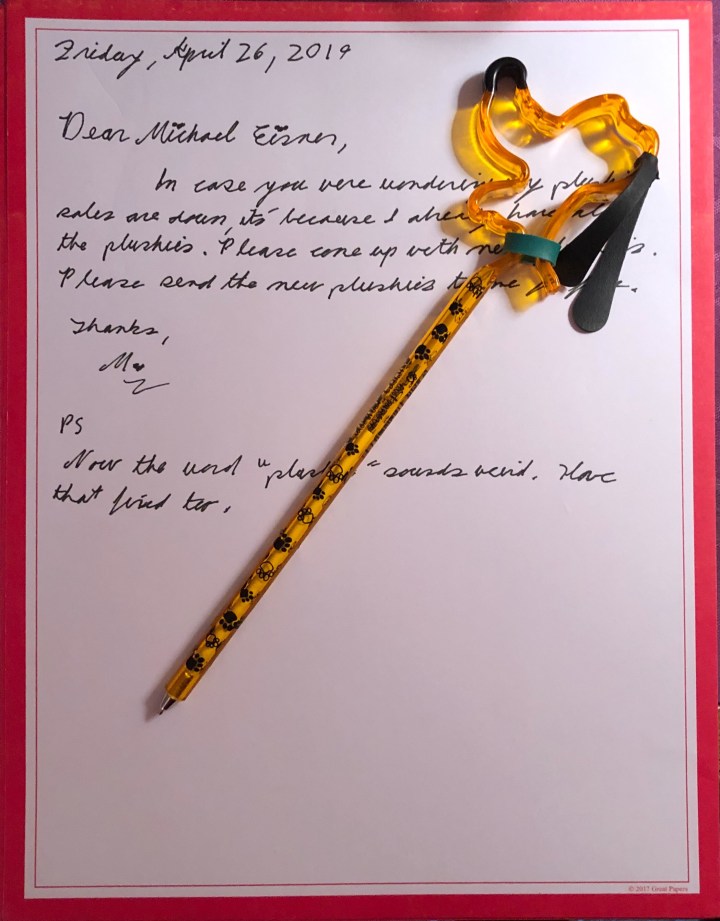 Friday, April 26, 2019
Dear Michael Eisner,
In case you were wondering y plushi
sales are down, its because I alrea have al
the plushies. Please come up with ne s.
Please send the new plushies t me
Thanks,
PS
Now the word "plus " sounds weird. Have
that fixed too.
© 2017 Great Papers